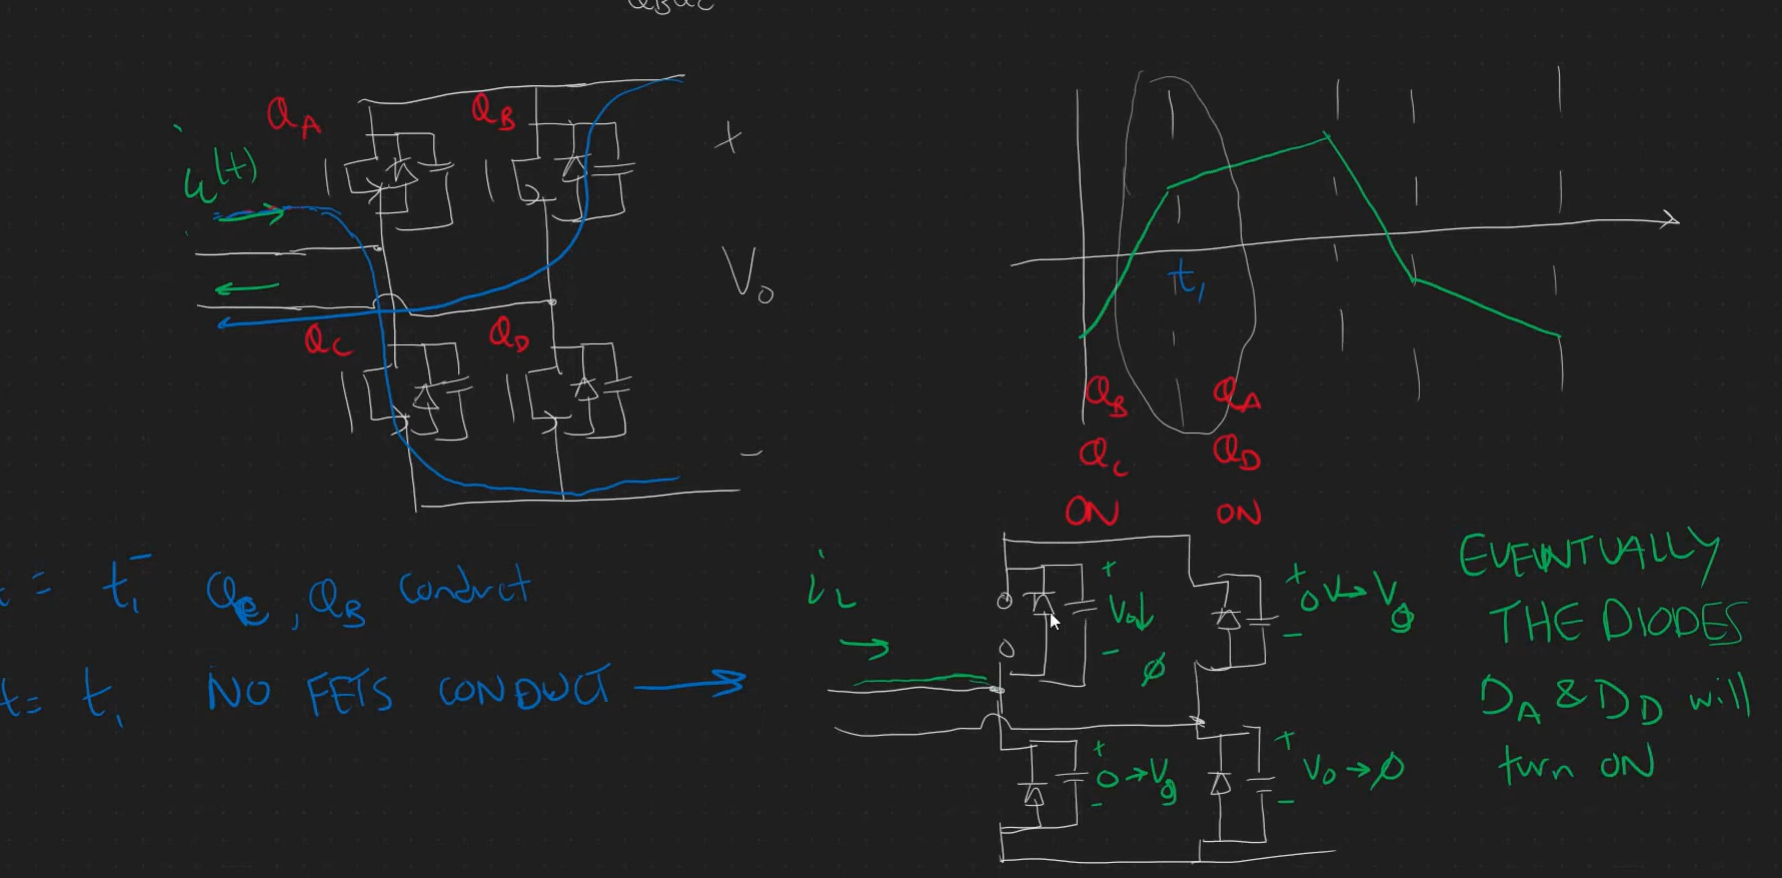 Q_A
Q_B
i_L(t)
+
V_o
Q_C
Q_D
-
t_1
Q_B
Q_A
Q_C
Q_D
ON
ON
= t_1^- Q_C, Q_B conduct
t = t_1 NO FETS CONDUCT →
i_L
+
V_o↓
-
∅
+
0V → V_g
-
+
0 → V_g
-
+
V_o → ∅
-
EVENTUALLY
THE DIODES
D_A & D_D will
turn ON